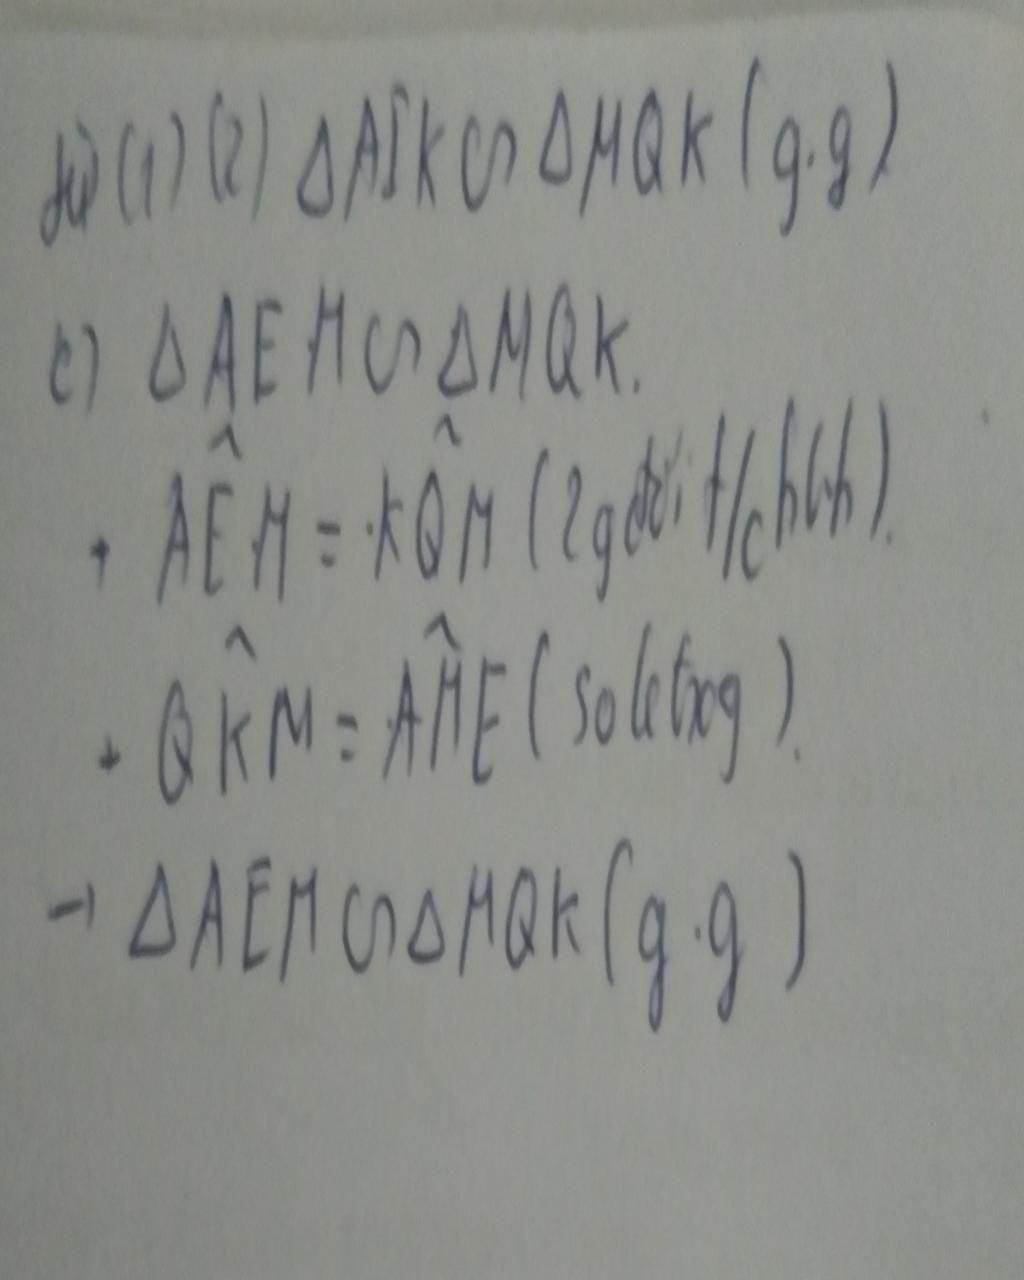 từ (1) (2) ΔAIK ᔕ ΔMQK (g.g)
c) ΔAEM ᔕ ΔMQK.
+ AÊM = KQ̂M (2g đối t/c hbh).
+ QK̂M = AM̂E (sole trog).
→ ΔAEM ᔕ ΔMQK (g.g)